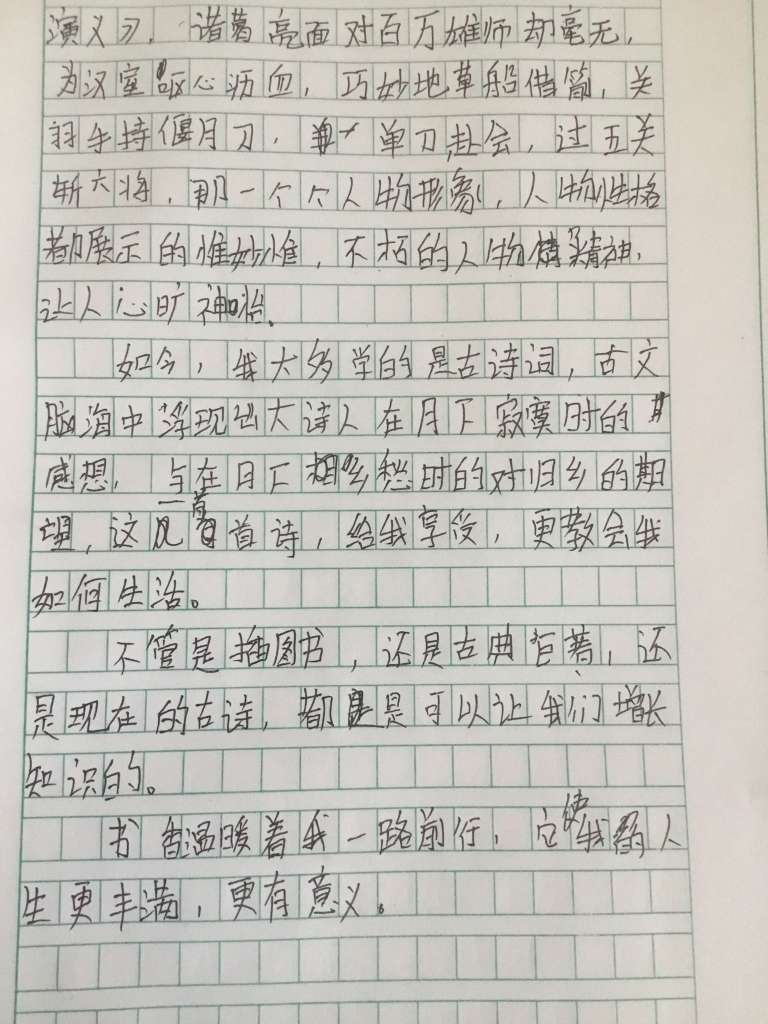 演义》，诸葛亮面对百万雄师却毫无，
为汉室呕心沥血，巧妙地草船借箭，关
羽手持偃月刀，单刀赴会，过五关
斩六将，那一个个人物形象，人物性格
都展示的惟妙惟，不朽的人物精神，
让人心旷神怡。
如今，我大多学的是古诗词，古文
脑海中浮现出大诗人在月下寂寞时的
感想，与在日下乡愁时的对归乡的期
望，这一首首诗，给我享受，更教会我
如何生活。
不管是插图书，还是古典巨著，还
是现在的古诗，都是可以让我们增长
知识的。
书香温暖着我一路前行，它使我的人
生更丰满，更有意义。